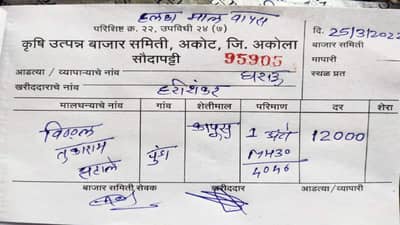 हलका माल वापस
परिशिष्ट क्र. २२, उपविधी २४ (७)
दि. 25/3/2022
कृषि उत्पन्न बाजार समिती, अकोट, जि. अकोला
बाजार समिती
सौदापट्टी 95905
मापारी
आडत्या / व्यापाऱ्याचे नांव
स्थळ प्रत
खरीददाराचे नांव हरीशंकर
मालधन्याचे नांव गांव शेतीमाल परिमाण दर शेरा
विठ्ठल तुकाराम कापूस 1 12000
M430
4046
बाजार समिती सेवक खरीददार आडत्या/व्यापारी